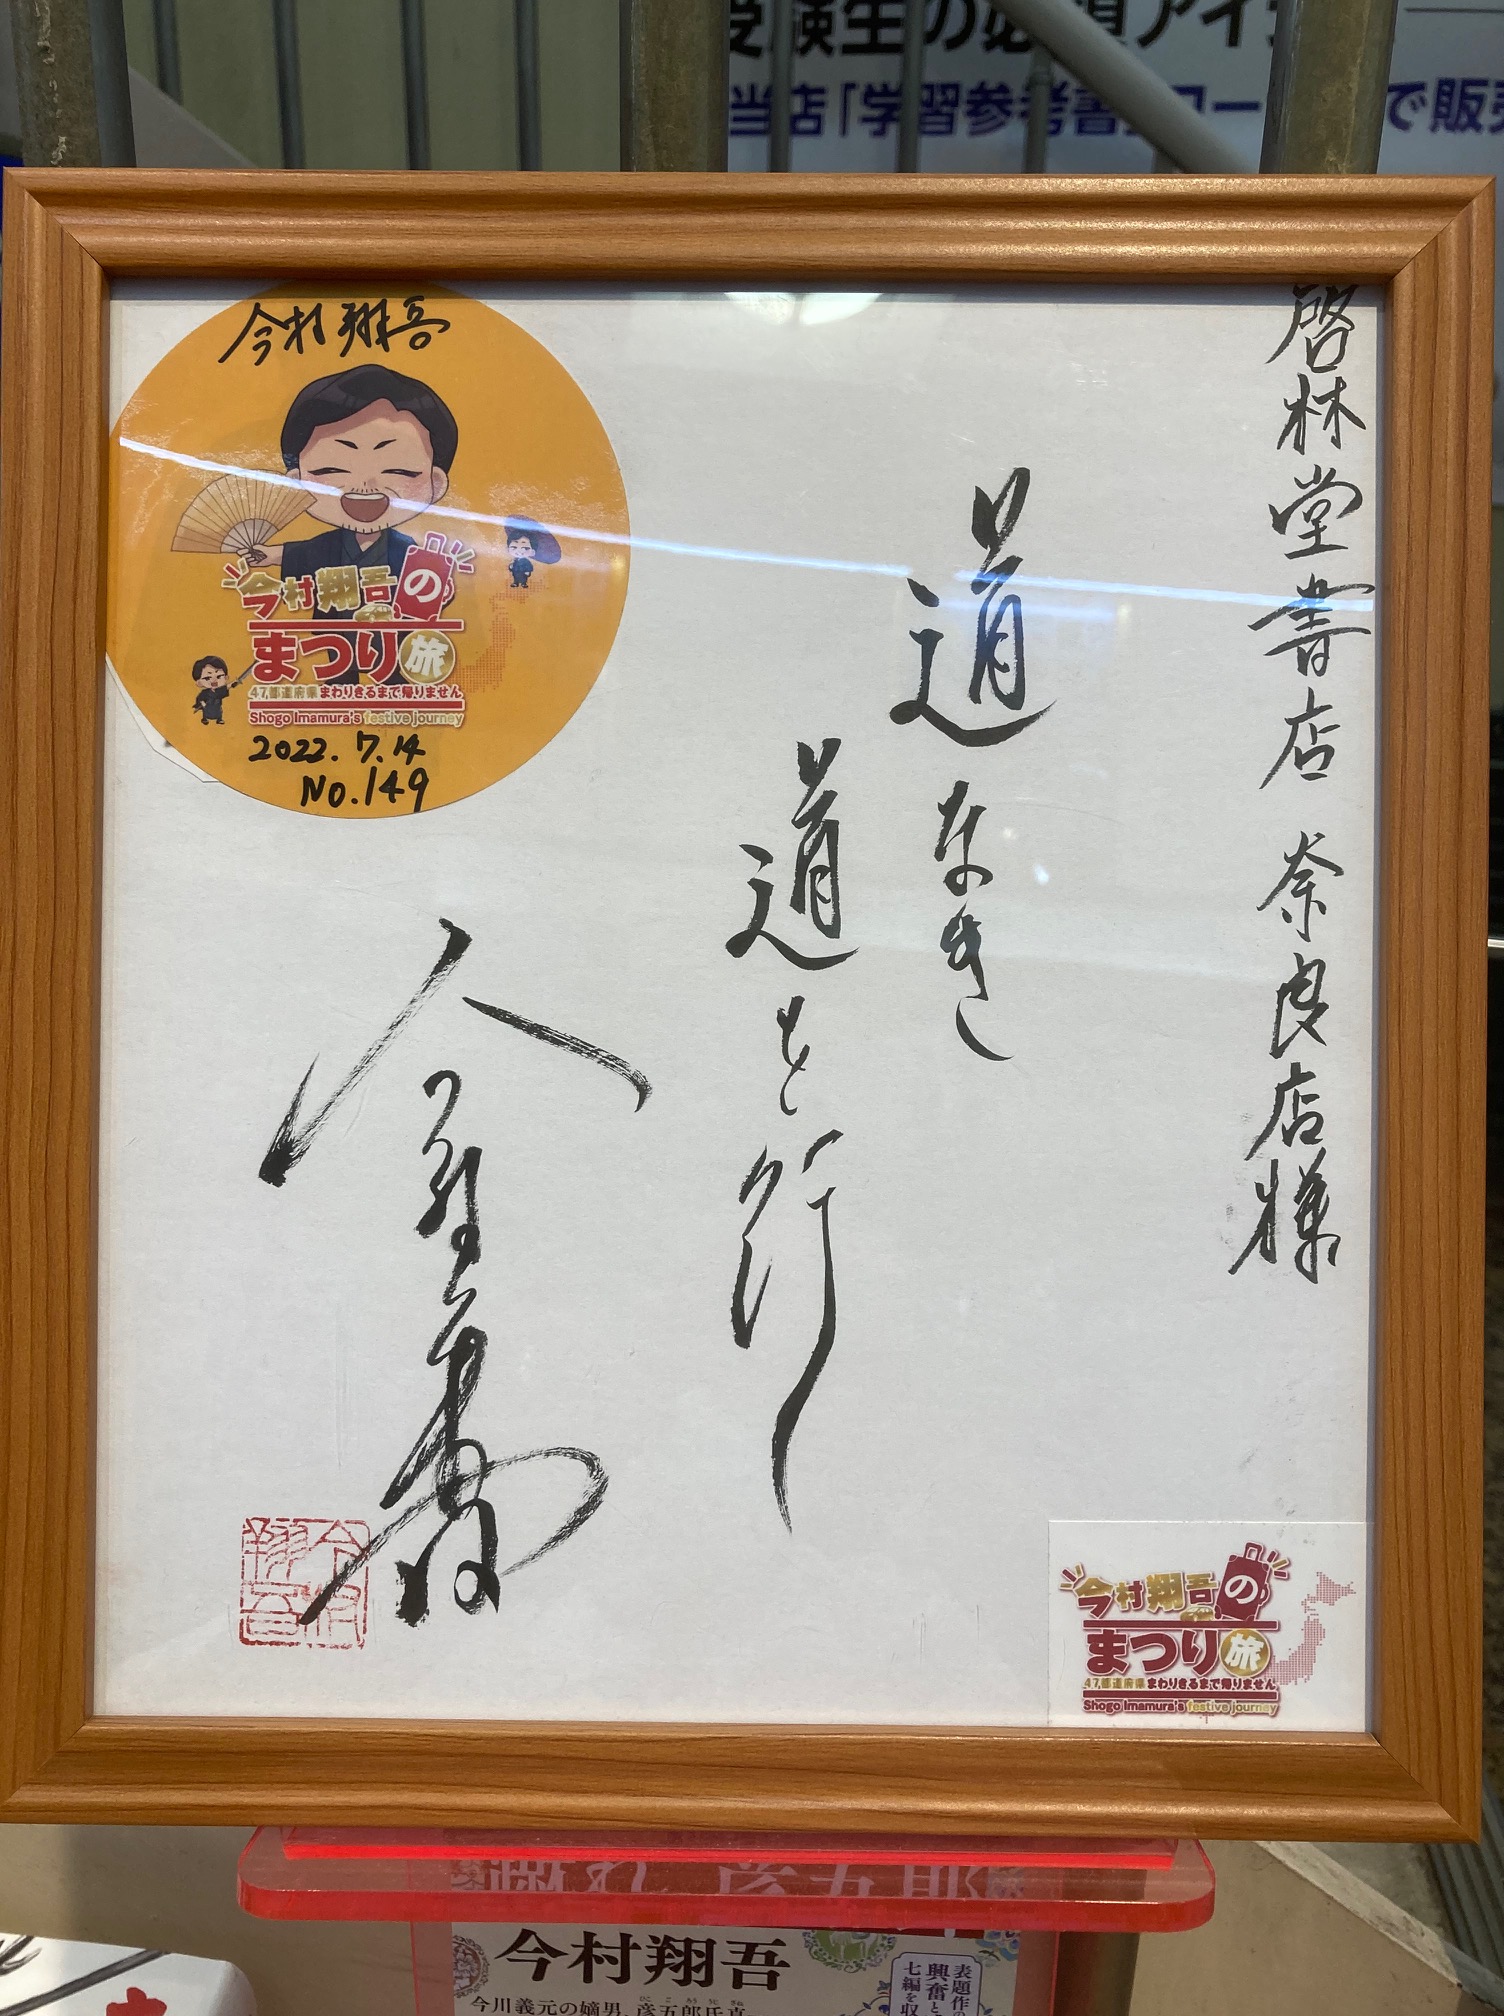 当店「学習参考書
で販売
啓林堂書店 奈良店様
道なき
道を行く
今村翔吾
今村翔吾
今村翔吾の
まつり旅
47都道府県まわりきるまで帰りません
Shogo Imamura's festive journey
2022.7.14
No.149
今村翔吾
今村翔吾の
まつり旅
47都道府県まわりきるまで帰りません
Shogo Imamura's festive journey
今村翔吾
今川義元の嫡男、彦五郎氏真
表題作の
興奮と
七編を収